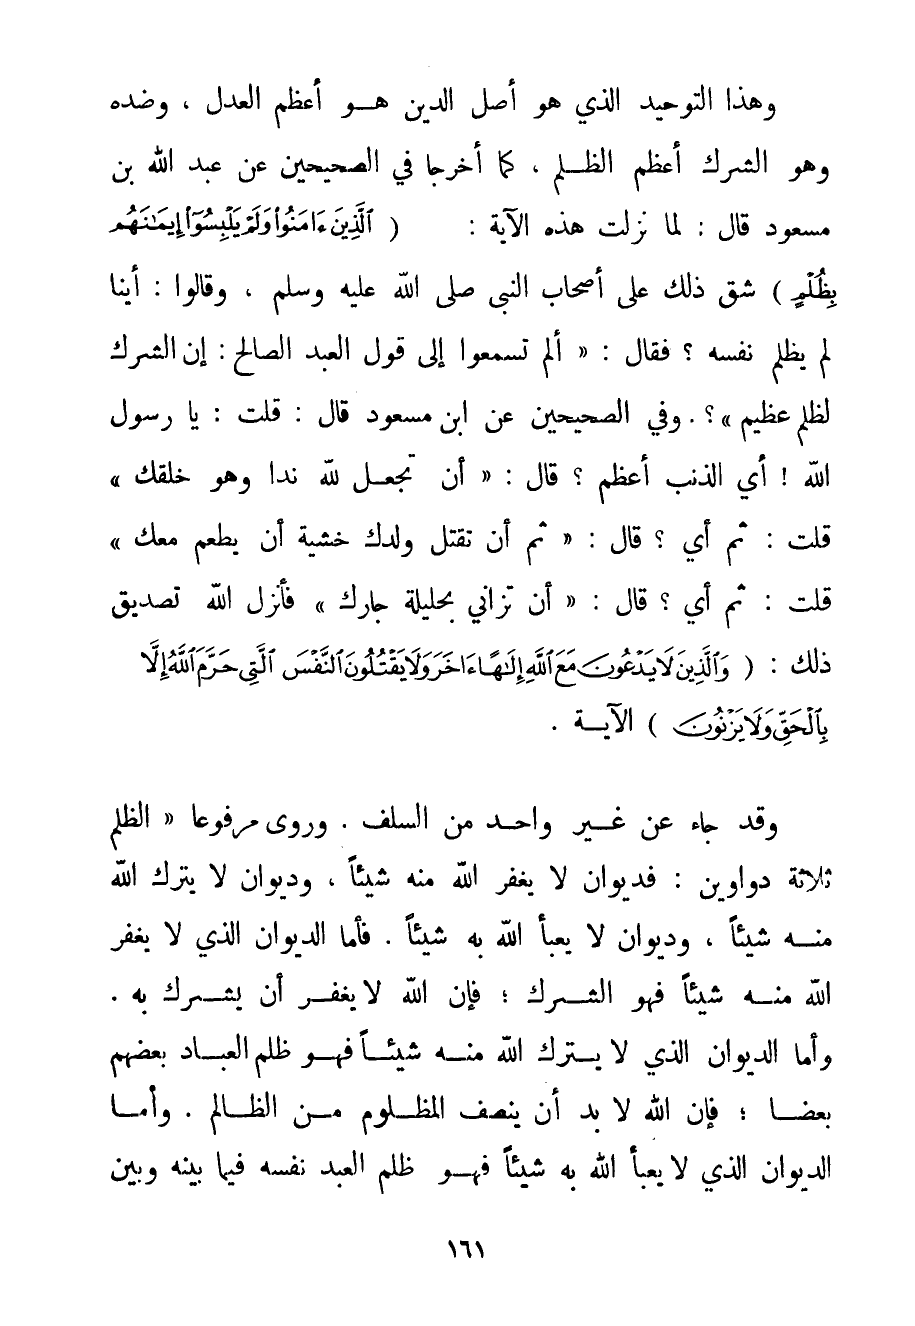 وهذا التوحيد الذي هو أصل الدين هـو أعظم العدل ، وضده
وهو الشرك أعظم الظـلم ، كما أخرجا في الصحيحين عن عبد الله بن
مسعود قال : لما نزلت هذه الآية : ( ٱلَّذِينَ ءَامَنُوا۟ وَلَمْ يَلْبِسُوٓا۟ إِيمَـٰنَهُم
بِظُلْمٍ ) شق ذلك على أصحاب النبي صلى الله عليه وسلم ، وقالوا : أينا
لم يظلم نفسه ؟ فقال : « ألم تسمعوا إلى قول العبد الصالح : إن الشرك
لظلم عظيم »؟ . وفي الصحيحين عن ابن مسعود قال : قلت : يا رسول
الله ! أي الذنب أعظم ؟ قال : « أن تجعـل لله ندا وهو خلقك »
قلت : ثم أي ؟ قال : « ثم أن تقتل ولدك خشية أن يطعم معك »
قلت : ثم أي ؟ قال : « أن تزاني بحليلة جارك » فأنزل الله تصديق
ذلك : ( وَٱلَّذِينَ لَا يَدْعُونَ مَعَ ٱللَّهِ إِلَـٰهًا ءَاخَرَ وَلَا يَقْتُلُونَ ٱلنَّفْسَ ٱلَّتِى حَرَّمَ ٱللَّهُ إِلَّا
بِٱلْحَقِّ وَلَا يَزْنُونَ ) الآيـة .
وقد جاء عن غـير واحـد من السلف . وروى مرفوعا « الظلم
ثلاثة دواوين : فديوان لا يغفر الله منه شيئاً ، وديوان لا يترك الله
منـه شيئاً ، وديوان لا يعبأ الله به شيئاً . فأما الديوان الذي لا يغفر
الله منـه شيئاً فهو الشـرك ؛ فإن الله لا يغفـر أن يشـرك به .
وأما الديوان الذي لا يـترك الله منـه شيئـاً فهـو ظلم العبـاد بعضهم
بعضـا ؛ فإن الله لا بد أن ينصف المظـلوم مـن الظـالم . وأمـا
الديوان الذي لا يعبأ الله به شيئاً فهـو ظلم العبد نفسه فيما بينه وبين
١٦١